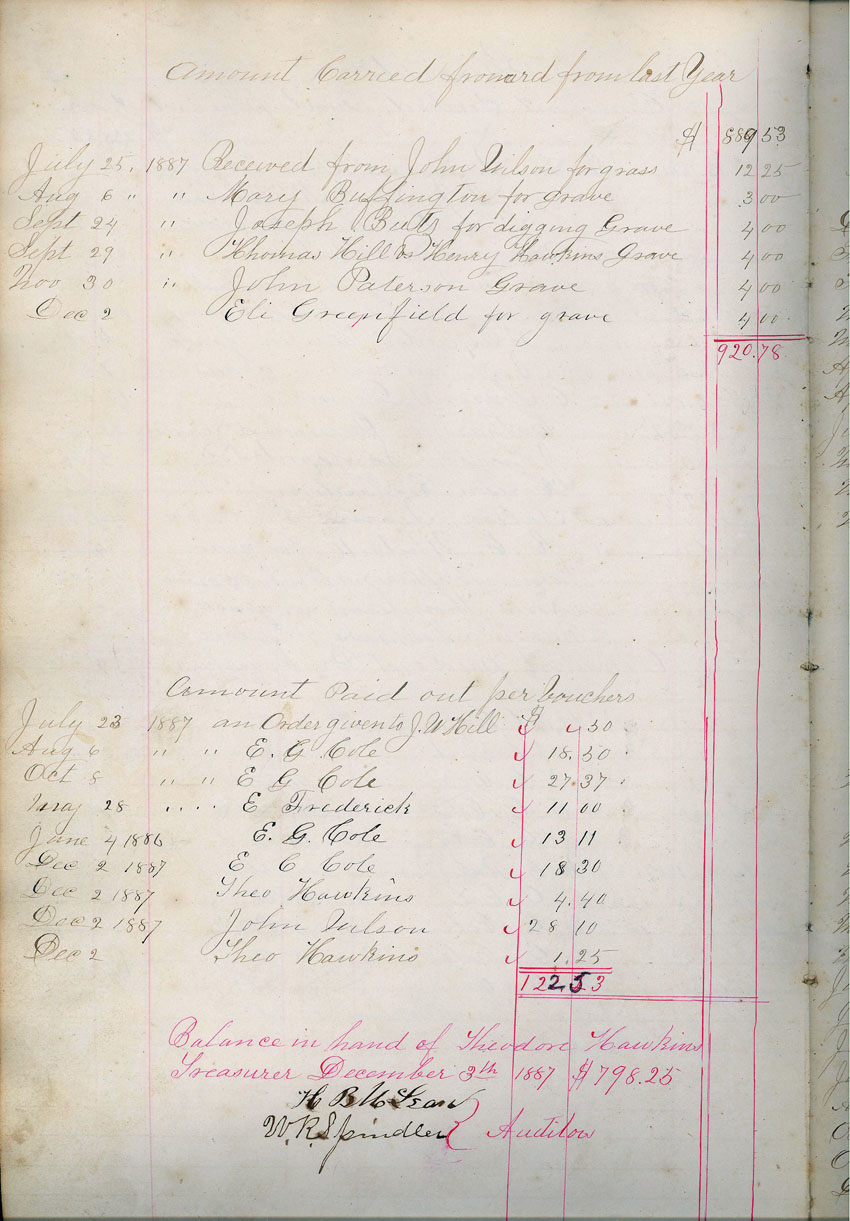 Amount Carreed froward from last Year
$ 889 53
July 25, 1887 Received from John Wilson for grass 12 25
Aug 6 " " Mary Buffington for Grave 3 00
Sept 24 " Joseph Butz for digging Grave 4 00
Sept 29 " Thomas Hill & Henry Hawkins Grave 4 00
Nov 30 " John Paterson Grave 4 00
Dec 2 Eli Greenfield for grave 4 00
920.78
Amount Paid out per Vouchers
July 23 1887 an Order given to J. W Hill $ .50
Aug 6 " " E. G. Cole 18.50
Oct 8 " " E G Cole 27.37
May 28 " " E Frederick 11 00
June 4 1886 E. G. Cole 13 11
Dec 2 1887 E C Cole 18 30
Dec 2 1887 Theo Hawkins 4.40
Dec 2 1887 John Wilson 28 10
Dec 2 Theo Hawkins 1.25
122.53
Balance in hand of Theodore Hawkins
Treasurer December 3th 1887 $798.25
H B McLean
W. R. Spindler Auditow